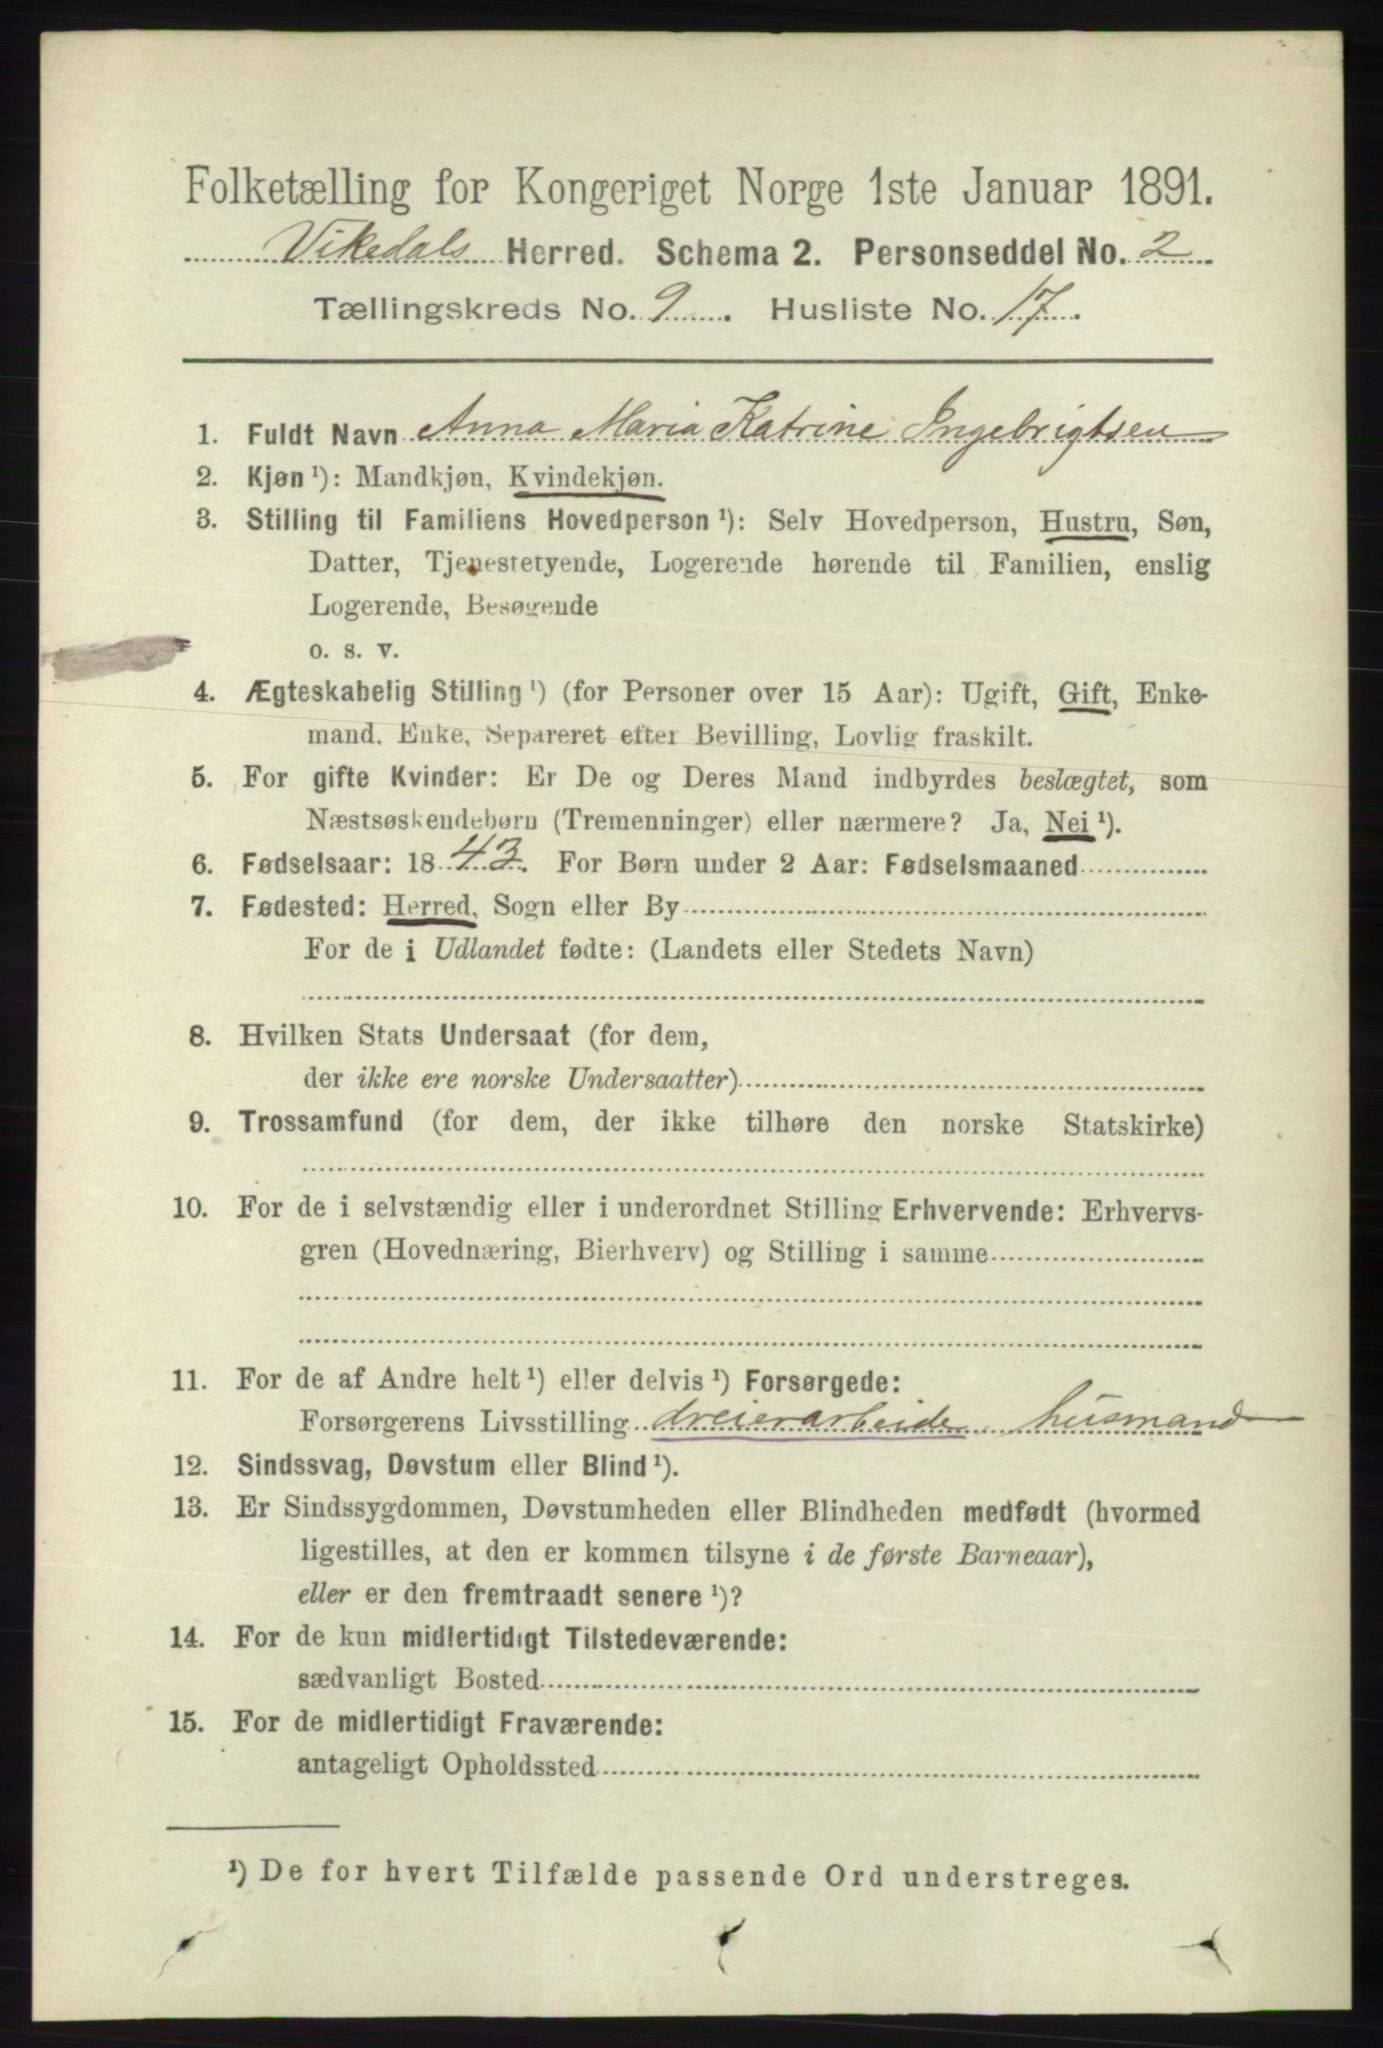 Folketælling for Kongeriget Norge 1ste Januar 1891.
Vikedals Herred. Schema 2. Personseddel No. 2
Tællingskreds No. 9. Husliste No. 17.
1. Fuldt Navn Anna Maria Katrine Ingebrigtsen
2. Kjøn ¹): Mandkjøn, Kvindekjøn.
3. Stilling til Familiens Hovedperson ¹): Selv Hovedperson, Hustru, Søn,
Datter, Tjenestetyende, Logerende hørende til Familien, enslig
Logerende, Besøgende
o. s. v.
4. Ægteskabelig Stilling ¹) (for Personer over 15 Aar): Ugift, Gift, Enke-
mand, Enke, Separeret efter Bevilling, Lovlig fraskilt.
5. For gifte Kvinder: Er De og Deres Mand indbyrdes beslægtet, som
Næstsøskendebørn (Tremenninger) eller nærmere? Ja, Nei ¹).
6. Fødselsaar: 1843. For Børn under 2 Aar: Fødselsmaaned
7. Fødested: Herred, Sogn eller By
For de i Udlandet fødte: (Landets eller Stedets Navn)
8. Hvilken Stats Undersaat (for dem,
der ikke ere norske Undersaatter)
9. Trossamfund (for dem, der ikke tilhøre den norske Statskirke)
10. For de i selvstændig eller i underordnet Stilling Erhvervende: Erhvervs-
gren (Hovednæring, Bierhverv) og Stilling i samme
11. For de af Andre helt ¹) eller delvis ¹) Forsørgede:
Forsørgerens Livsstilling dreierarbeide, husmand
12. Sindssvag, Døvstum eller Blind ¹).
13. Er Sindssygdommen, Døvstumheden eller Blindheden medfødt (hvormed
ligestilles, at den er kommen tilsyne i de første Barneaar),
eller er den fremtraadt senere ¹)?
14. For de kun midlertidigt Tilstedeværende:
sædvanligt Bosted
15. For de midlertidigt Fraværende:
antageligt Opholdssted
¹) De for hvert Tilfælde passende Ord understreges.